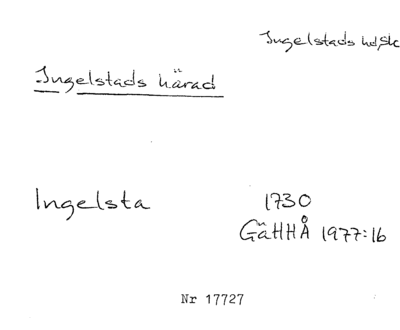 Ingelstads hd, Sk
Ingelstads härad
Ingelsta 1730
GäHHÅ 1977:16
Nr 17727